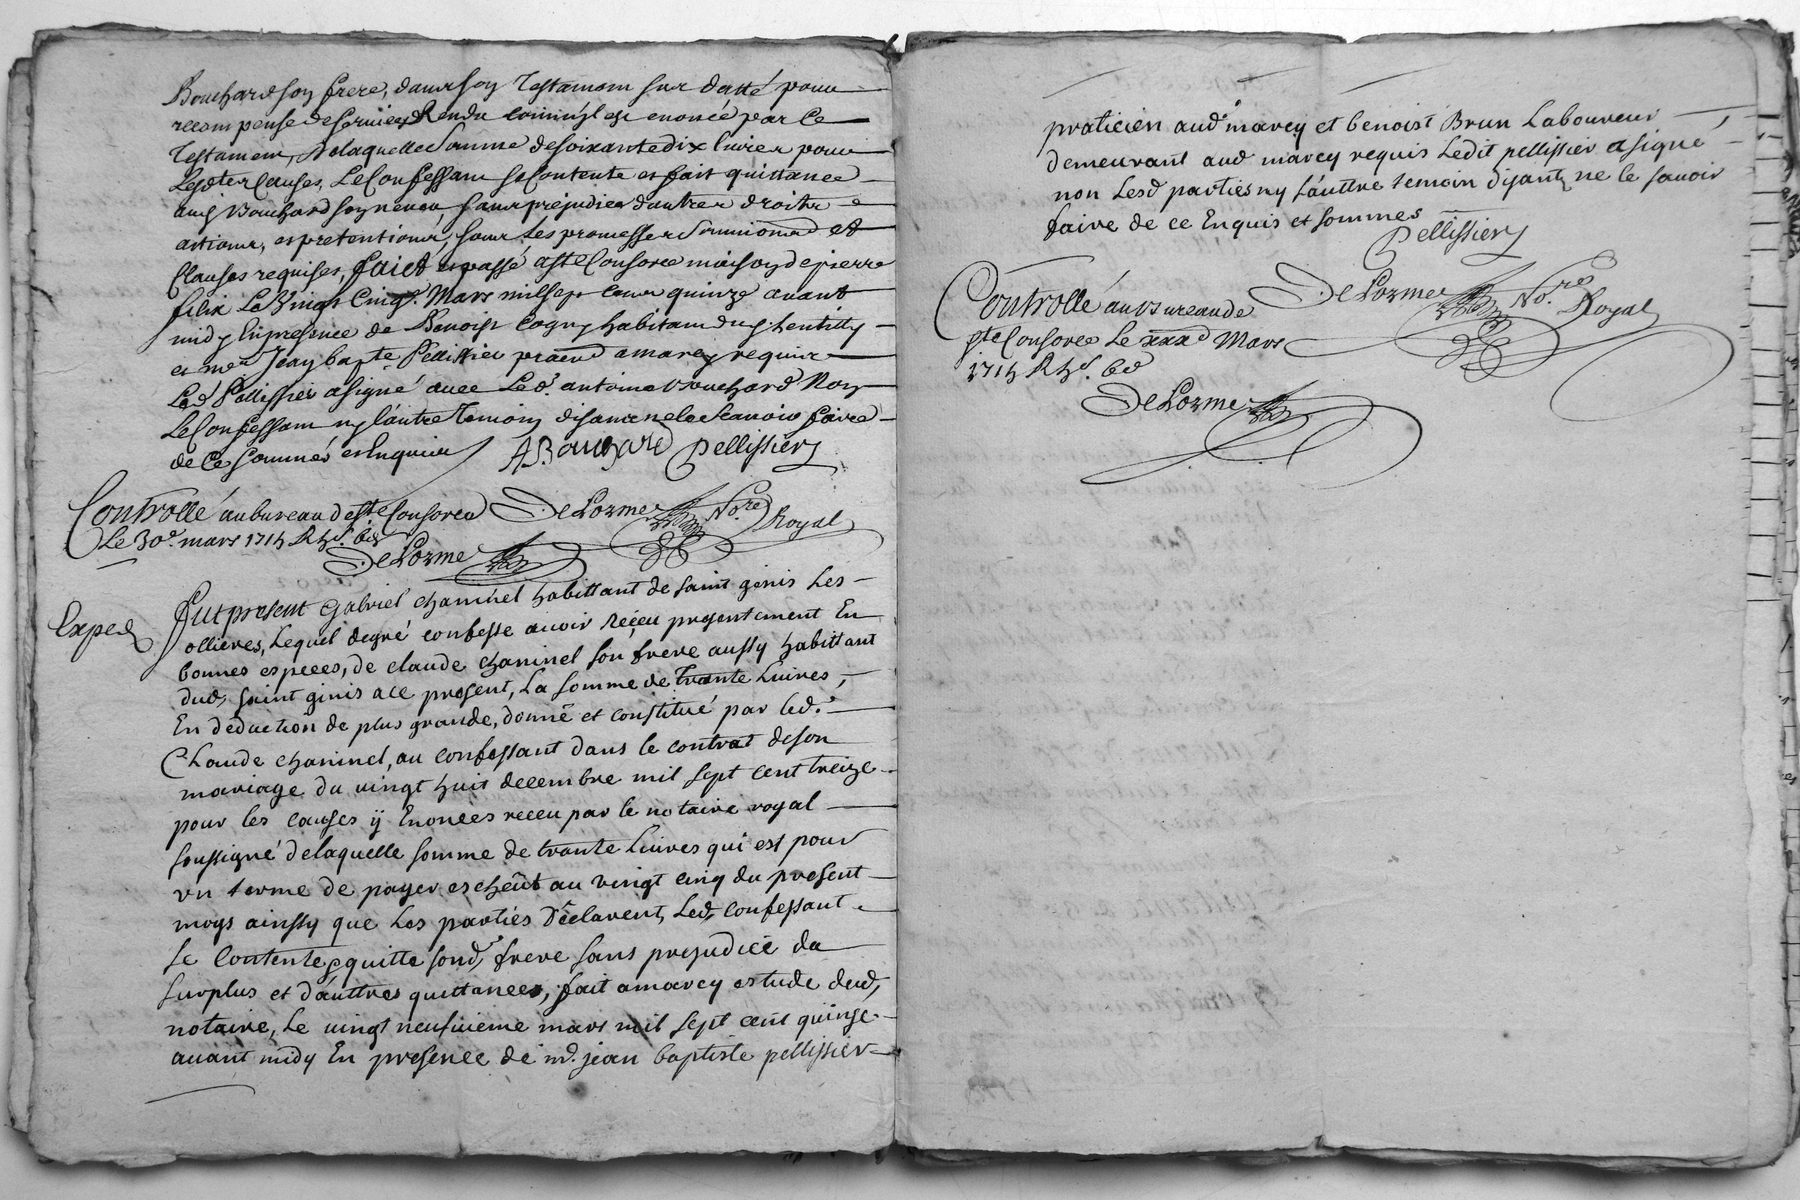 Bouchard son frere, dans son Testament sur datté pour
recompense de services Rendu comm'il est enoncé par ce
Testament, de laquelle somme de soixante dix livres pour
Lesdtes causes, Le Confessant se Contente et fait quittance
aud Bouchard son neveu, sans prejudice d'autres droits
actions, et pretentions, sous Les promesses soumions et
Clauses requises, faict et passé a Ste Consorce maison de pierre
felix Le Vingt Cinqe. Mars mil sept cent quinze avant
midy En presence de Benoist Cogny habitant du
et mre Jean bapte Pellissier praticn a marcy requis
Led Pellissier a signé avec Led. antoine Bouchard Non
Le Confessant ny l'autre Temoin disant ne le scavoir faire
de Ce sommés et Enquis
ABouchard Pellissier
Controllé au bureau de Ste Consorce DeLorme No.re Royal
Le 30e. mars 1715 R 6d
DeLorme
Exped
Fut present Gabriel chaninel habittant de saint genis Les
ollieres, Lequel degré confesse avoir reçeu presentement En
bonnes especes, de claude chaninel son frere aussy habittant
dud, saint ginis a ce present, La somme de trante Livres,
En deduction de plus grande, donné et constitué par led.
Claude chaninel, au confessant dans le contrat de son
mariage du vingt huit decembre mil sept cent treize
pour les causes ÿ Enoncees receu par le notaire royal
soussigné de laquelle somme de trante Livres qui est pour
un terme de payer escheüt au vingt cinq du present
moys ainssy que Les parties déclarent, Led, confessant
se contente & quitte sond, frere sans prejudice du
surplus et d'auttres quittances, fait a marcy estude dud,
notaire, Le vingt neufvieme mars mil sept cent quinze
avant midy En presence de me. jean baptiste pellissier
praticien aud marcy et benoist Brun Laboureur
demeurant aud marcy requis Ledit pellissier a signé
non Lesd parties ny l'auttre temoin disantz ne le savoir
faire de ce Enquis et sommes
Pellissier
Controllé au Bureau de DeLorme No.re Royal
Ste Consorce Le xxxe Mars
1715 R 6d
DeLorme